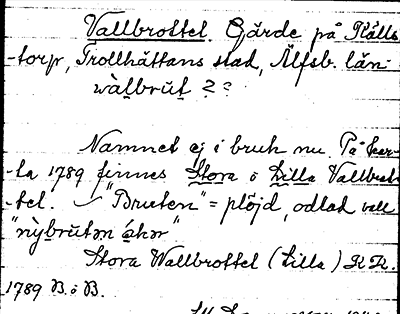 Vallbrottel. Gärde på Källs-
-torp, Trollhättans stad, Älfsb. län.
vàlbrūt̠ ??
Namnet ej i bruk nu. På kar-
-ta 1789 finnes Stora o Lilla Vallbrot-
-tel. "Bruten" = plöjd, odlad vall
"nỳbrūtən åkər"
Stora Wallbrottel (Lilla) K. K.
1789 B. o B.